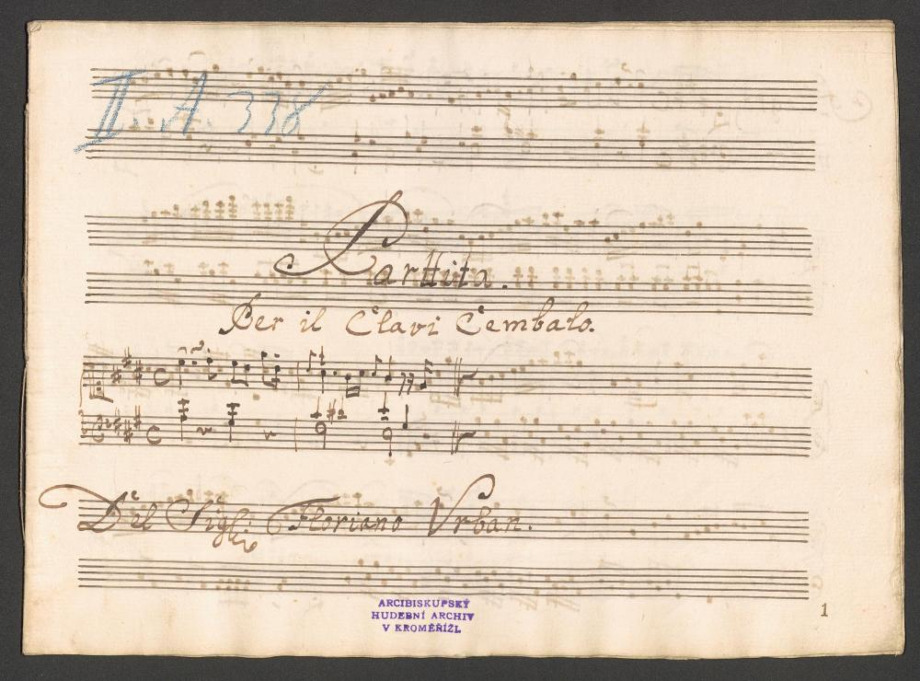 II. A 338
Parttita.
Per il Clavi Cembalo.
Del Sigl: Floriano Vrban.
ARCIBISKUPSKÝ
HUDEBNÍ ARCHIV
V KROMĚŘÍŽI.
1